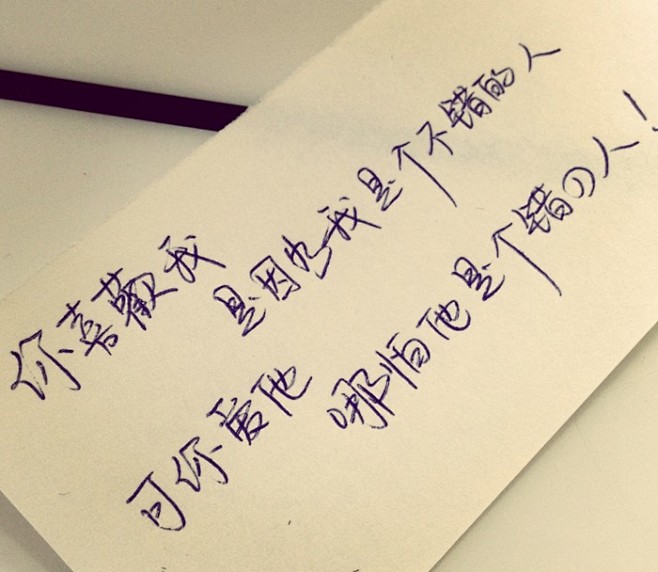 你喜歡我 是因为我是个不错的人
可你爱他 哪怕他是个错の人!